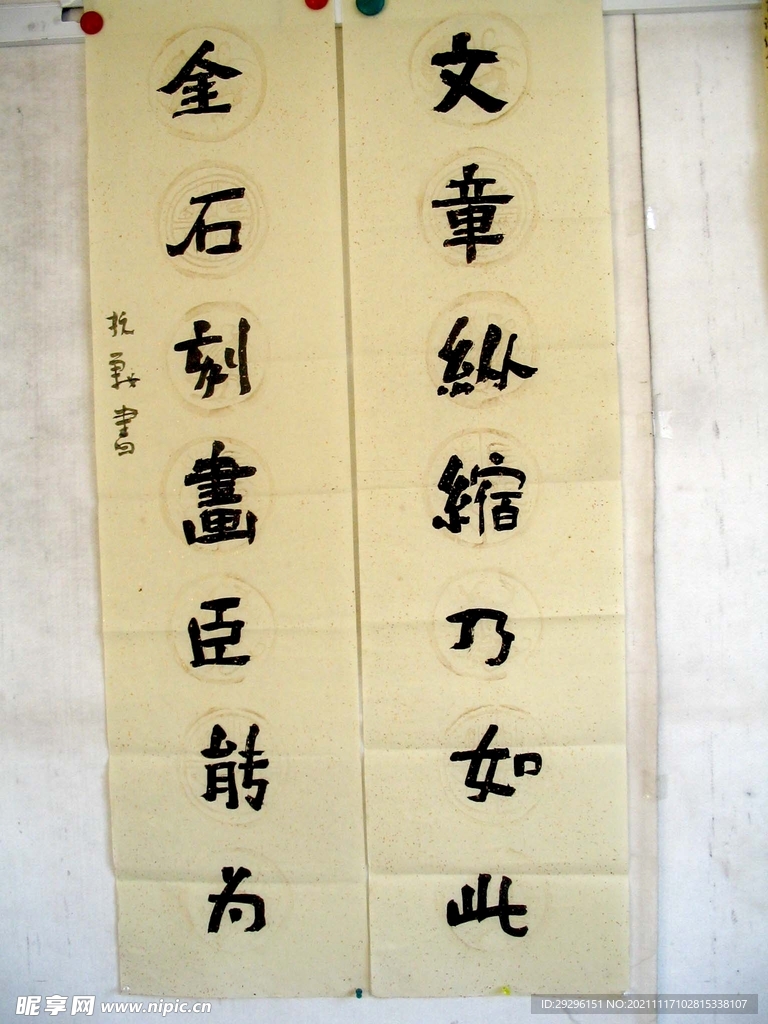 文章縱縮乃如此
金石刻畫臣能为
抗戰書
昵享网 www.nipic.cn
ID:29296151 NO:20211117102815338107